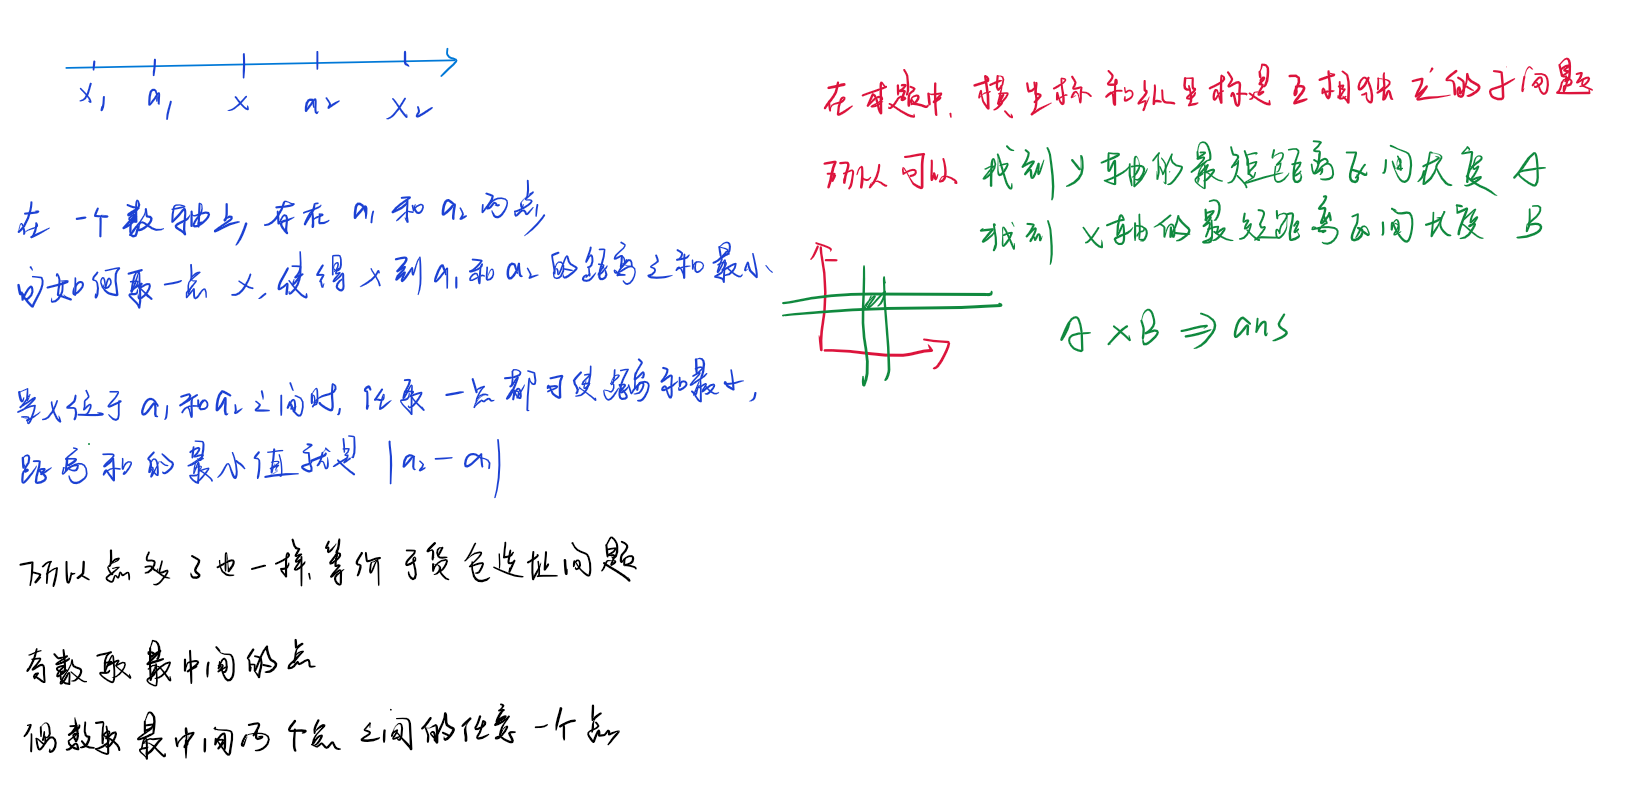 x₁ a₁ x a₂ x₂
在一个数轴上,存在 a₁ 和 a₂ 两点,
问如何取一点 x, 使得 x 到 a₁ 和 a₂ 的距离之和最小、
当x位于 a₁ 和 a₂ 之间时, 任取一点都可使距离和最小,
距离和的最小值就是 |a₂-a₁|
所以点多了也一样,等价于货仓选址问题
奇数取最中间的点
偶数取最中间两个点之间的任意一个点
在本题中, 横坐标和纵坐标是互相独立的子问题
所以可以 找到 y 轴的最短距离区间长度 A
找到 x轴的最短距离区间长度 B
A × B ⇒ ans